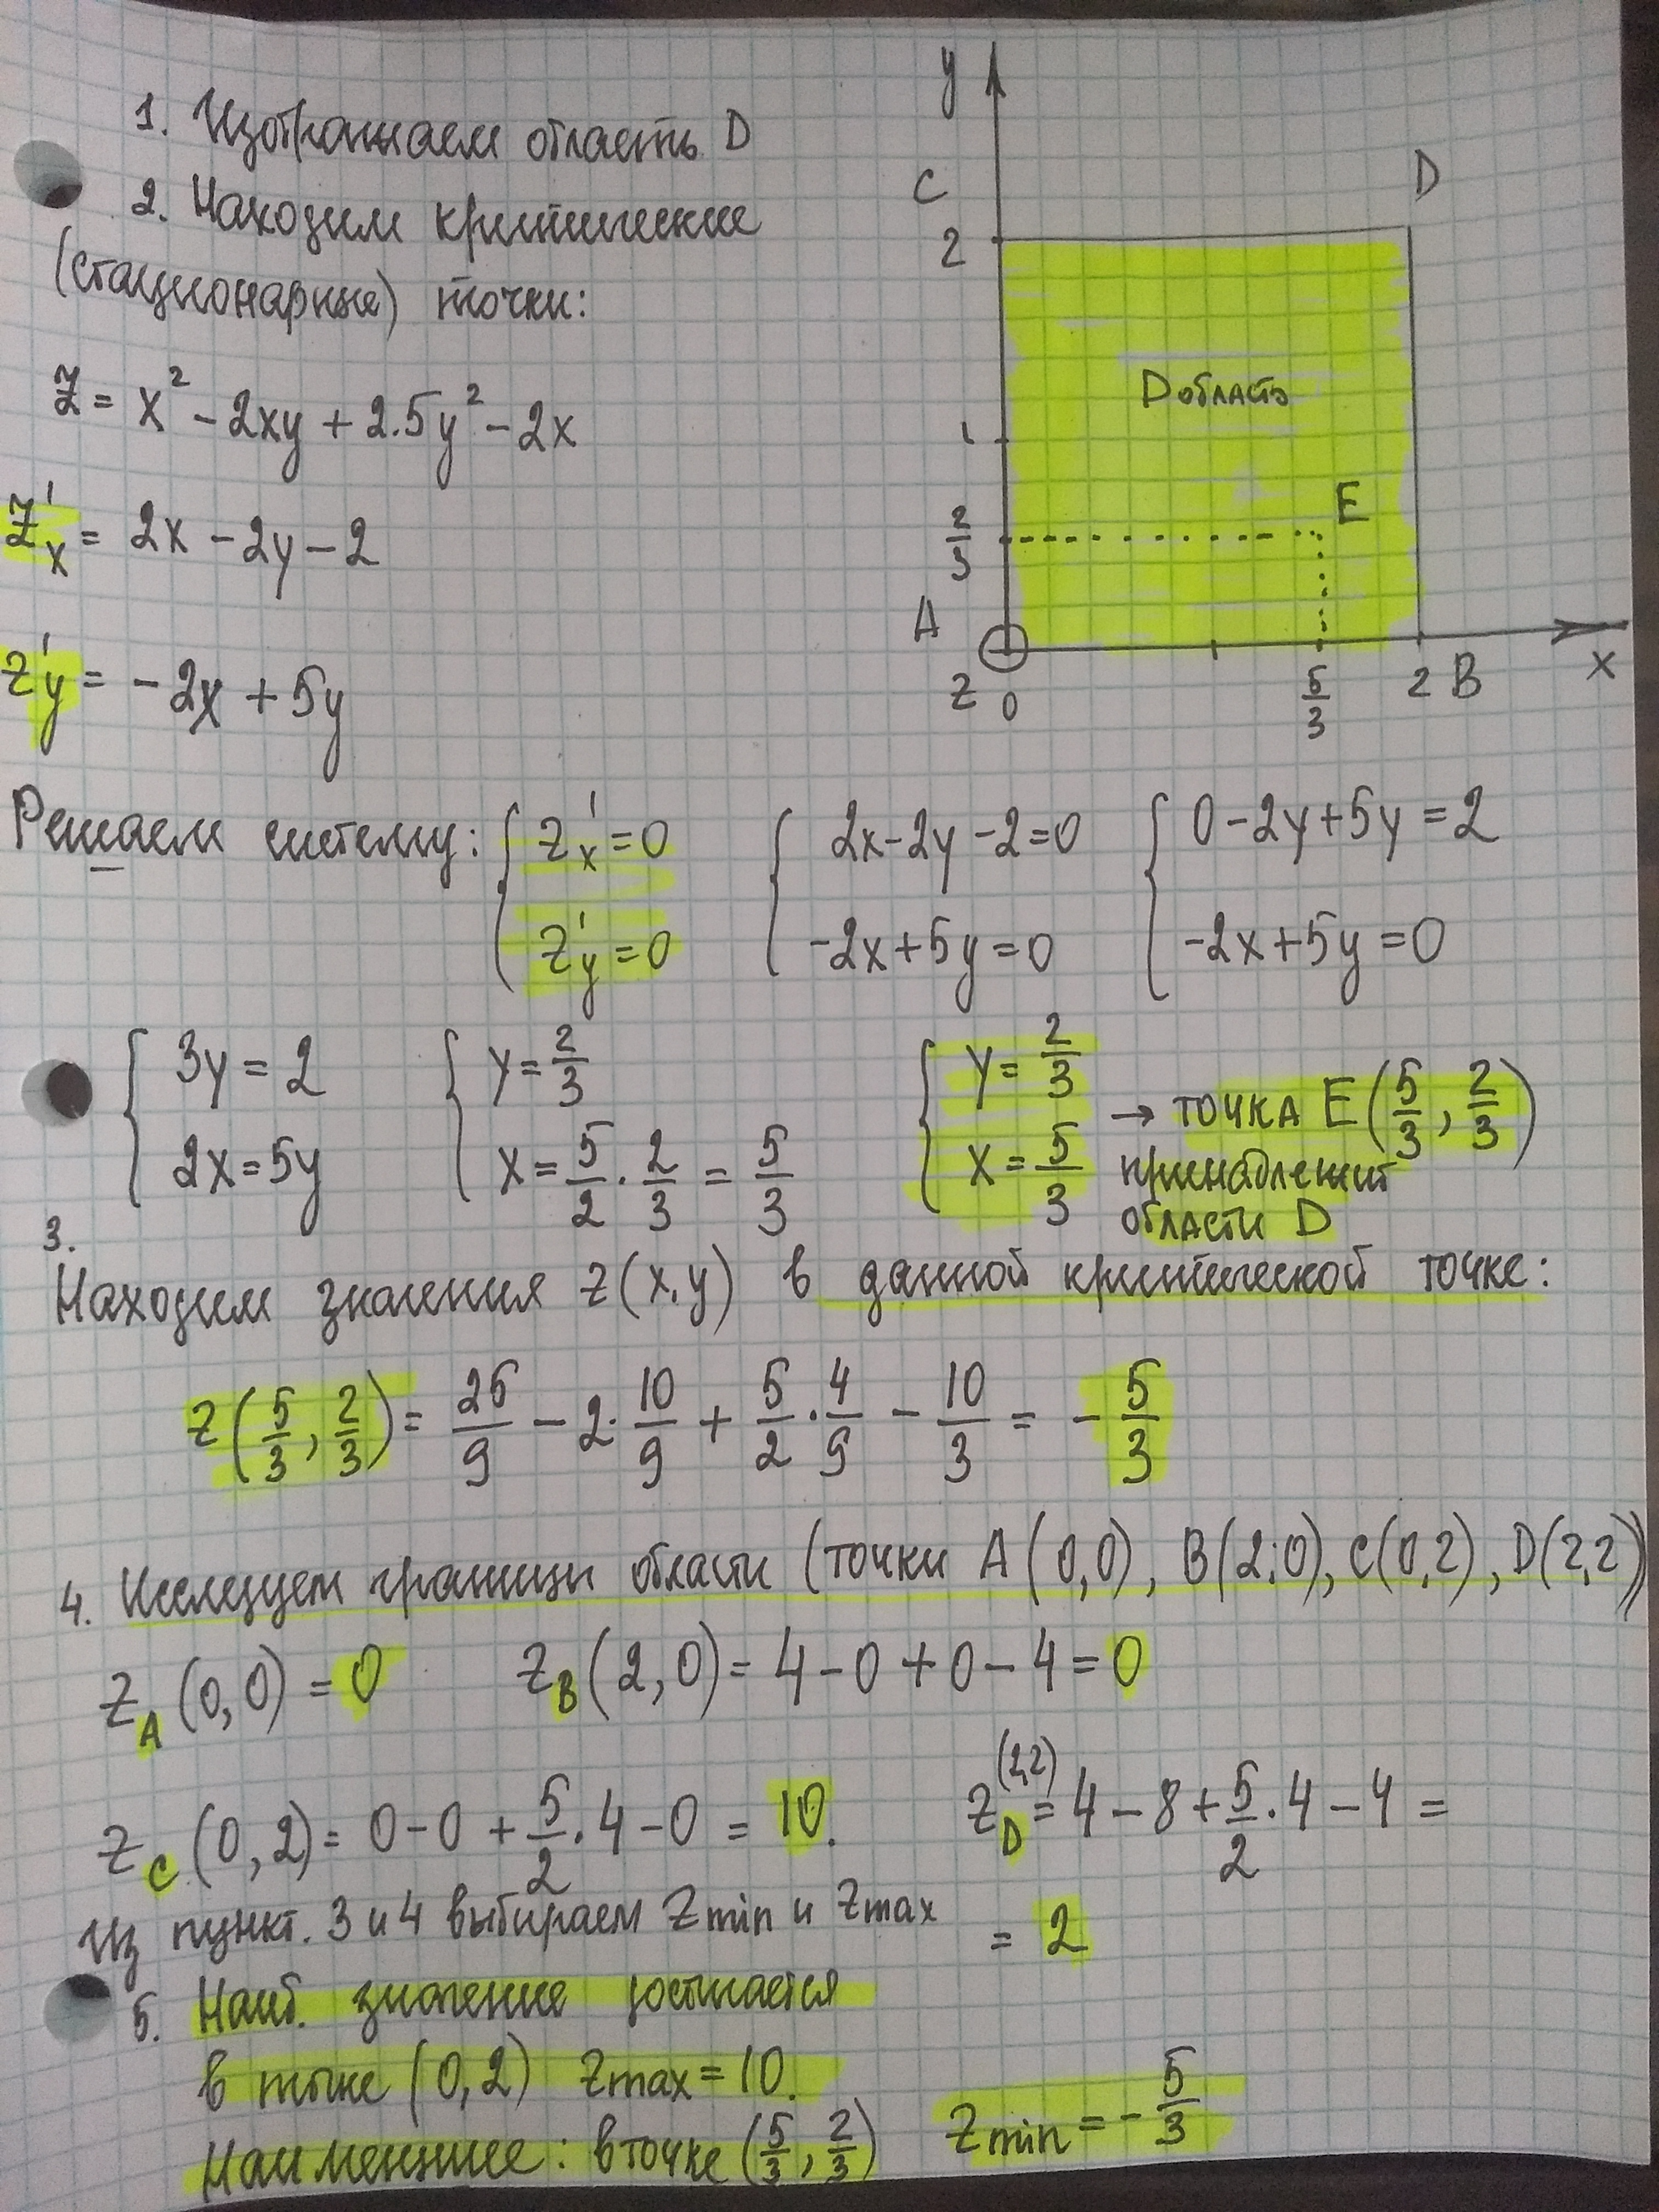 1. Изображаем область D
2. Находим критические
(стационарные) точки:
Z = x² - 2xy + 2.5y² - 2x
Z'x = 2x - 2y - 2
Z'y = -2x + 5y
y
C
D
2
D область
1
E
2/3
A
Z
0
5/3
2
B
x
Решаем систему: { Z'x = 0 { 2x - 2y - 2 = 0 { 0 - 2y + 5y = 2
Z'y = 0 -2x + 5y = 0 -2x + 5y = 0
{ 3y = 2 { y = 2/3 { y = 2/3
2x = 5y x = 5/2 · 2/3 = 5/3 x = 5/3
→ точка E(5/3, 2/3)
принадлежит
области D
3.
Находим значения z(x,y) в данной критической точке:
z(5/3, 2/3) = 25/9 - 2·10/9 + 5/2·4/9 - 10/3 = -5/3
4. Исследуем границы области (точки A(0,0), B(2;0), C(0,2), D(2,2))
Z_A (0,0) = 0 Z_B (2,0) = 4 - 0 + 0 - 4 = 0
Z_C (0,2) = 0 - 0 + 5/2·4 - 0 = 10. Z_D (2,2) = 4 - 8 + 5/2·4 - 4 =
= 2
Из пункт. 3 и 4 выбираем Zmin и Zmax
5. Наиб. значение достигается
в точке (0,2) Zmax = 10.
Наименьшее: в точке (5/3, 2/3) Zmin = -5/3